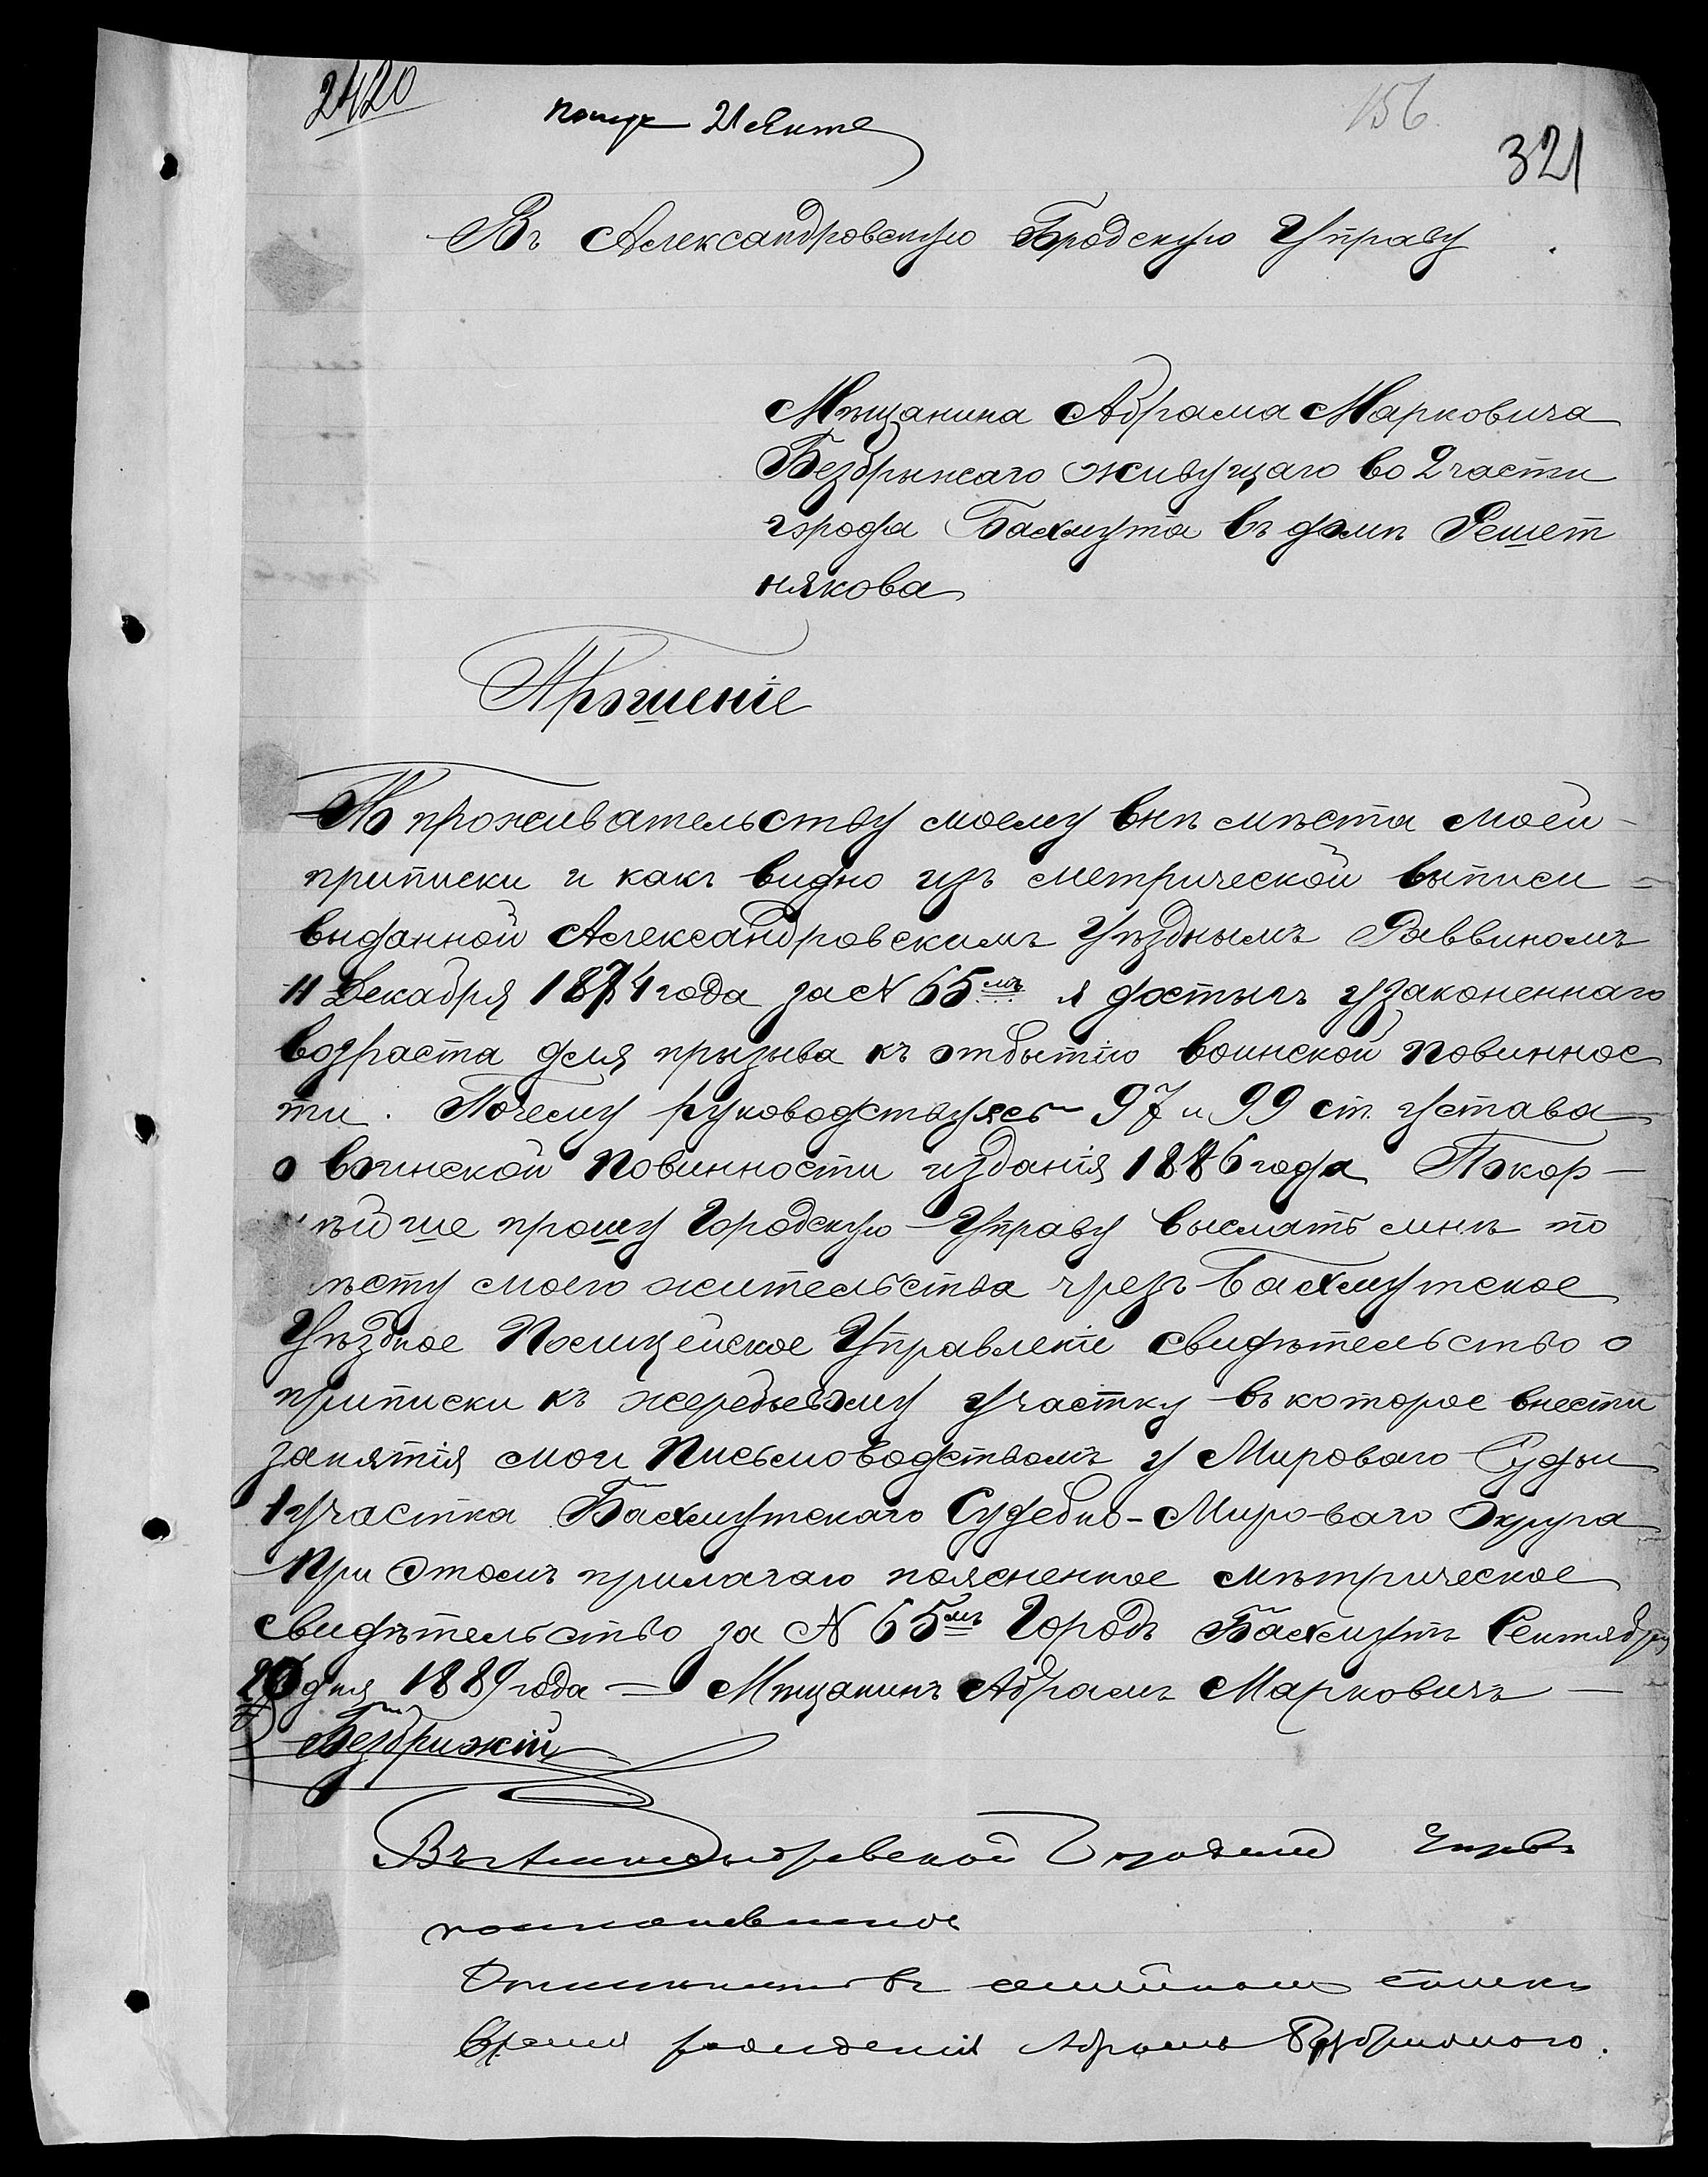 2420
156
321
Получ 21 Сентя
Въ Александровскую Городскую Управу
Мѣщанина Абрама Марковича
Безбрыжаго живущаго во 2 части
города Бахмута въ домѣ Решет
някова
Прошеніе
По проживательству моему внѣ мѣста моей
приписки и какъ видно изъ метрической выписи
выданной Александровскимъ Уѣзднымъ Раввиномъ
11 Декабря 1874 года за № 65мъ я достигъ узаконеннаго
возраста для призыва къ отбытію воинской повиннос
ти. Почему руководствуясь 97 и 99 ст. устава
о воинской повинности изданія 1886 года Покор-
нѣйше прошу Городскую Управу выслать мнѣ по
мѣсту моего жительства чрезъ Бахмутское
Уѣздное Полицейское Управленіе свидѣтельство о
приписки къ жеребьевому участку въ которое внести
занятія мои письмоводствомъ у Мироваго Судьи
1 участка Бахмутскаго Судебно-Мироваго Округа
При этомъ прилагаю поясненное мѣтрическое
свидѣтельство за № 65мъ Городъ Бахмутъ Сентября
20 дня 1889 года — Мѣщанинъ Абрамъ Марковичъ —
Безбрижій
Въ Александровской Городской Управѣ
въ семейномъ спискѣ
время рожденія Абрама Безбрижаго.